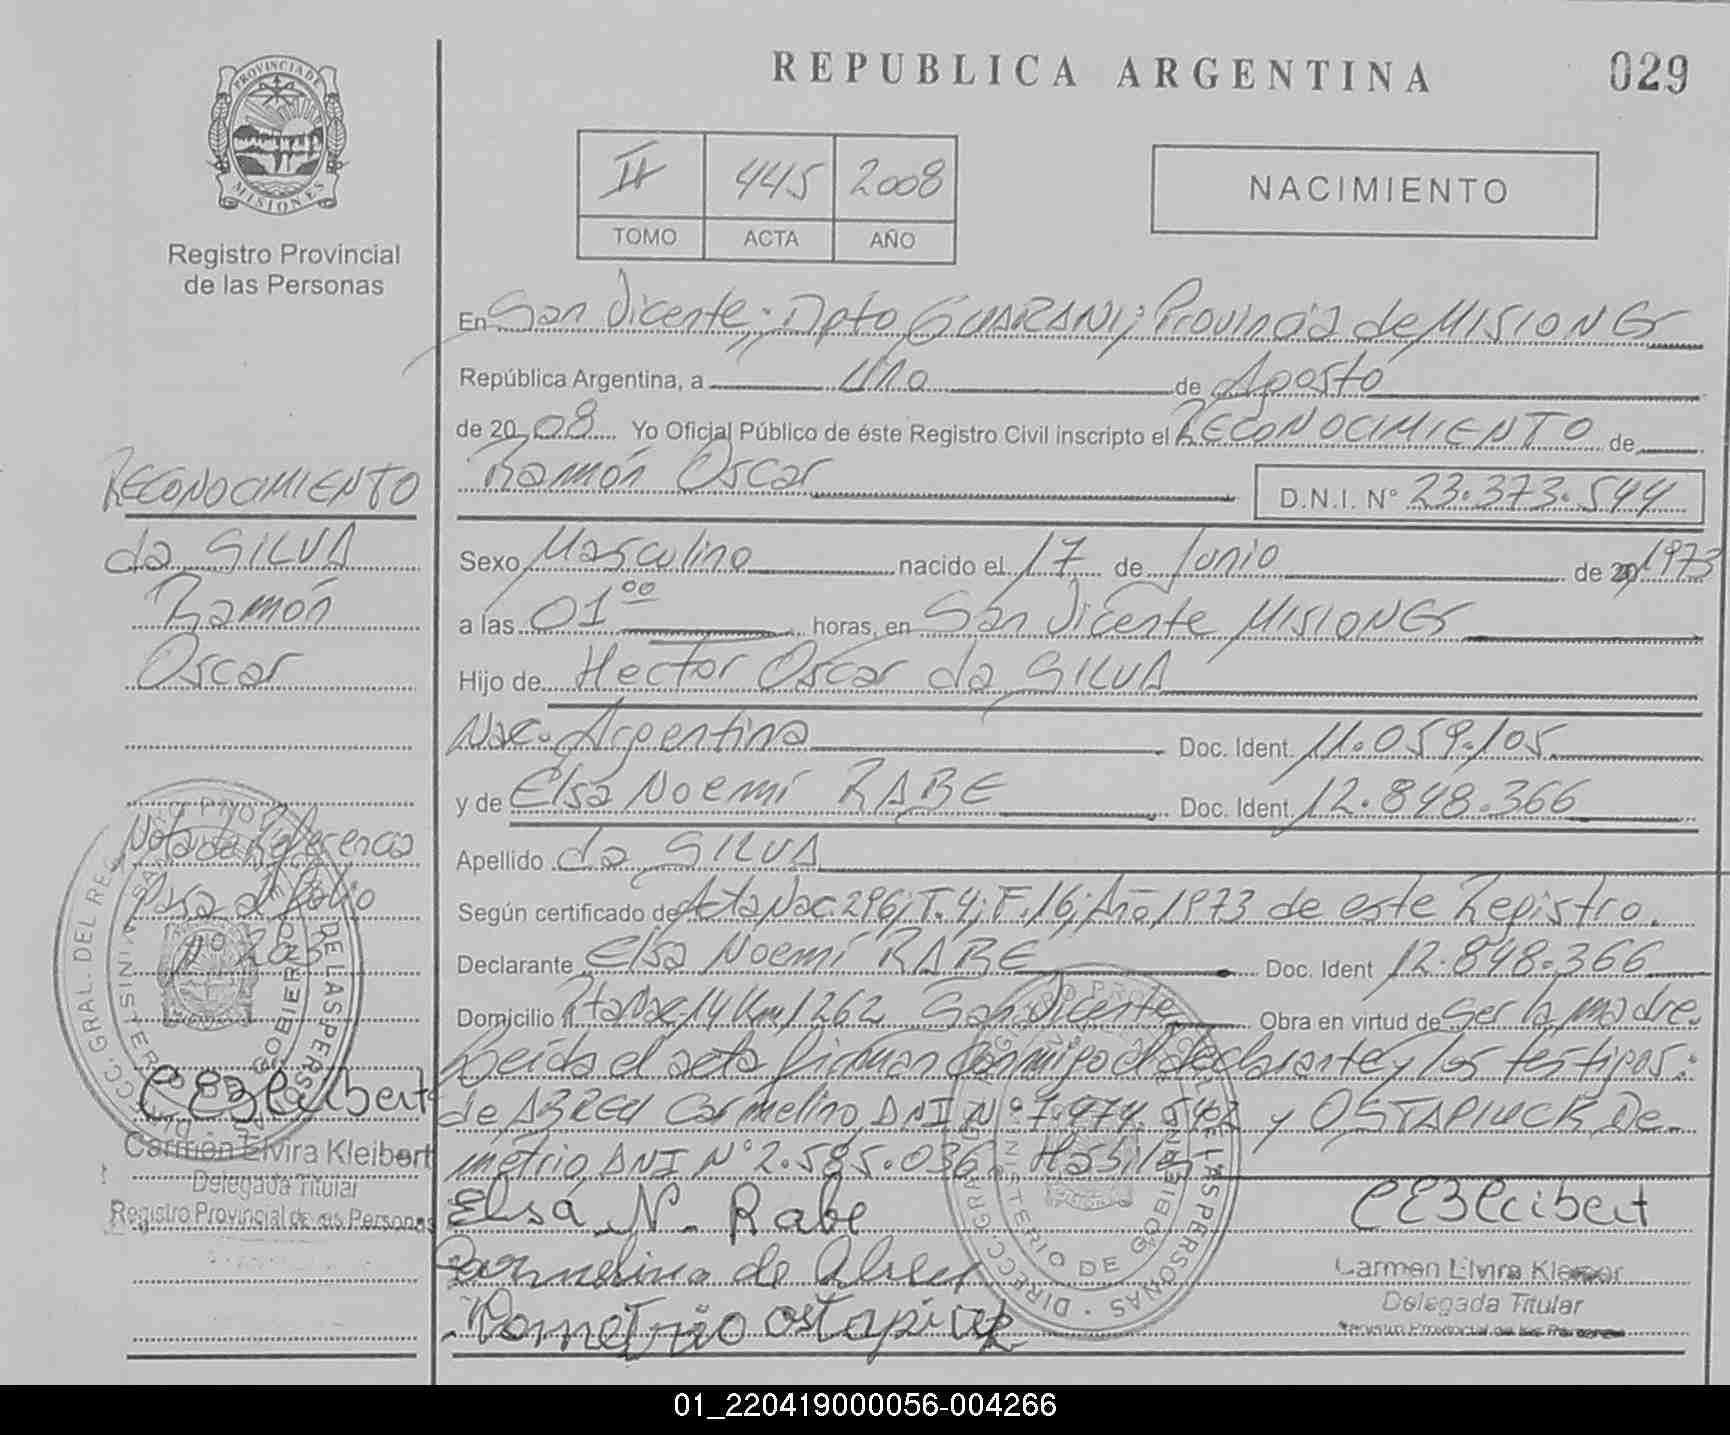 REPUBLICA ARGENTINA
029
PROVINCIA DE
MISIONES
Registro Provincial
de las Personas
II 445 2008
TOMO ACTA AÑO
NACIMIENTO
En San Vicente; Dpto GUARANI; Provincia de MISIONES
República Argentina, a Uno de Agosto
de 20 08 Yo Oficial Público de éste Registro Civil inscripto el RECONOCIMIENTO de
Ramón Oscar D.N.I. N° 23.373.544
Sexo Masculino nacido el 17 de Junio de 20 1973
a las 01 00 horas, en San Vicente MISIONES
Hijo de Hector Oscar da SILVA
Nac. Argentina Doc. Ident. 11.059.105
y de Elsa Noemí RABE Doc. Ident. 12.848.366
Apellido da SILVA
Según certificado de Acta Nac. 296; T. 4; F. 16; Año 1973 de este Registro.
Declarante Elsa Noemí RABE Doc. Ident 12.848.366
Domicilio Rta Nac. 14 Km 1262 San Vicente Obra en virtud de Ser la madre.
Leída el acta firman conmigo el declarante y los testigos:
de ABREU Carmelino DNI N° 7.974.542 y OSTAPIUCK De-
metrio DNI N° 2.585.036 Hábiles
Elsa N. Rabe
Carmelino de Abreu
Demetrio ostapiuck
CEKleibert
Carmen Elvira
Delegada Titular
Registro Provincial de las Personas
RECONOCIMIENTO
da SILVA
Ramón
Oscar
Nota de Referencia
Pasa al folio
N° 203
CEKleibert
Carmen Elvira Kleibert
Delegada Titular
Registro Provincial de las Personas
DIRECC. GRAL. DEL REG
DE LAS PERSONAS
MINISTERIO DE GOBIERNO
01_220419000056-004266